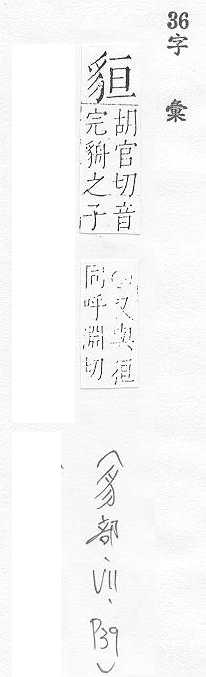 36字彙
貆
胡官切音
完之子
又與
同呼淵切
(豸部、VII、P39)